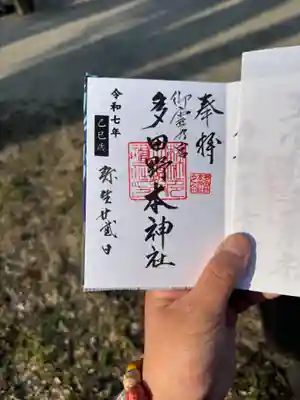 奉拝
多田野本神社
令和七年
乙巳歳
弥生廿弐日